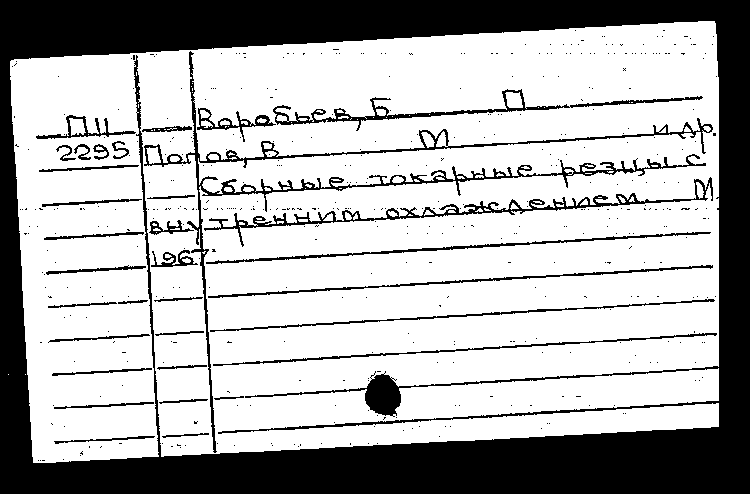 П11 Воробьев, Б П
2295 Попов, В М и др.
Сборные токарные резцы с
внутренним охлаждением. М
1967.